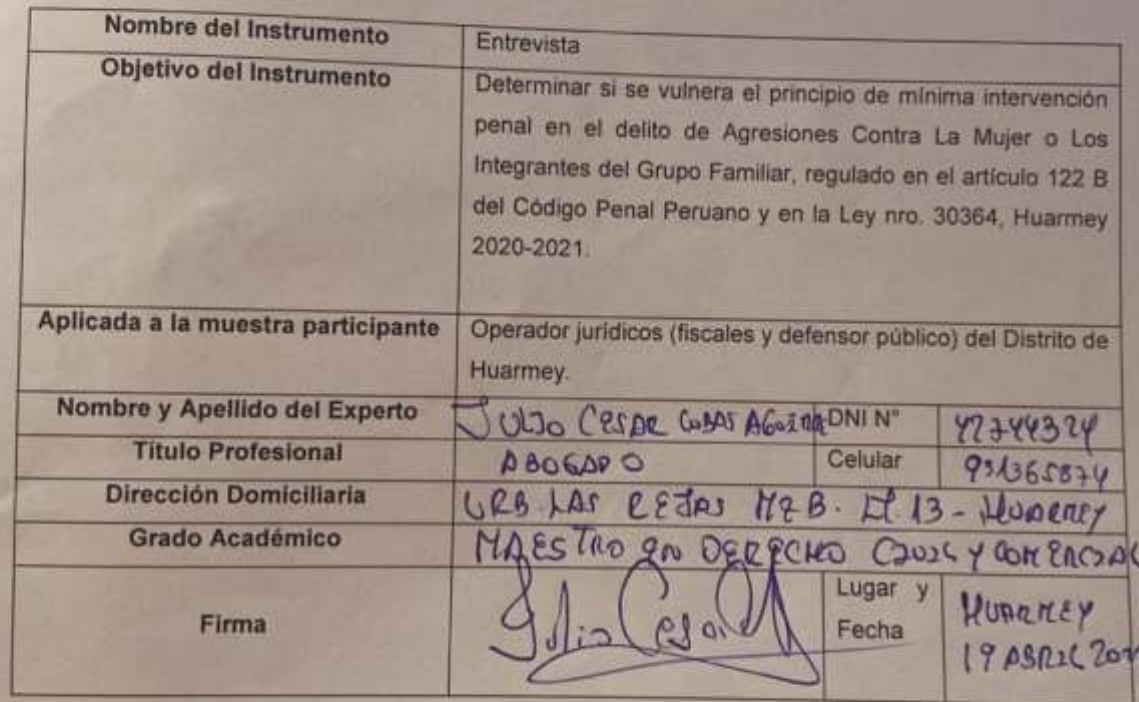 Nombre del Instrumento
Entrevista
Objetivo del Instrumento
Determinar si se vulnera el principio de mínima intervención
penal en el delito de Agresiones Contra La Mujer o Los
Integrantes del Grupo Familiar, regulado en el artículo 122 B
del Código Penal Peruano y en la Ley nro. 30364, Huarmey
2020-2021.
Aplicada a la muestra participante
Operador jurídicos (fiscales y defensor público) del Distrito de
Huarmey.
Nombre y Apellido del Experto
JULIO CESAR COBAS
DNI N°
42744324
Título Profesional
ABOGADO
Celular
931365874
Dirección Domiciliaria
URB. LAS REJAS MZ B. LT. 13 - HUARMEY
Grado Académico
MAESTRO EN DERECHO CIVIL Y COMERCIAL
Firma
Julio Cesar
Lugar y
Fecha
HUARMEY
19 ABRIL